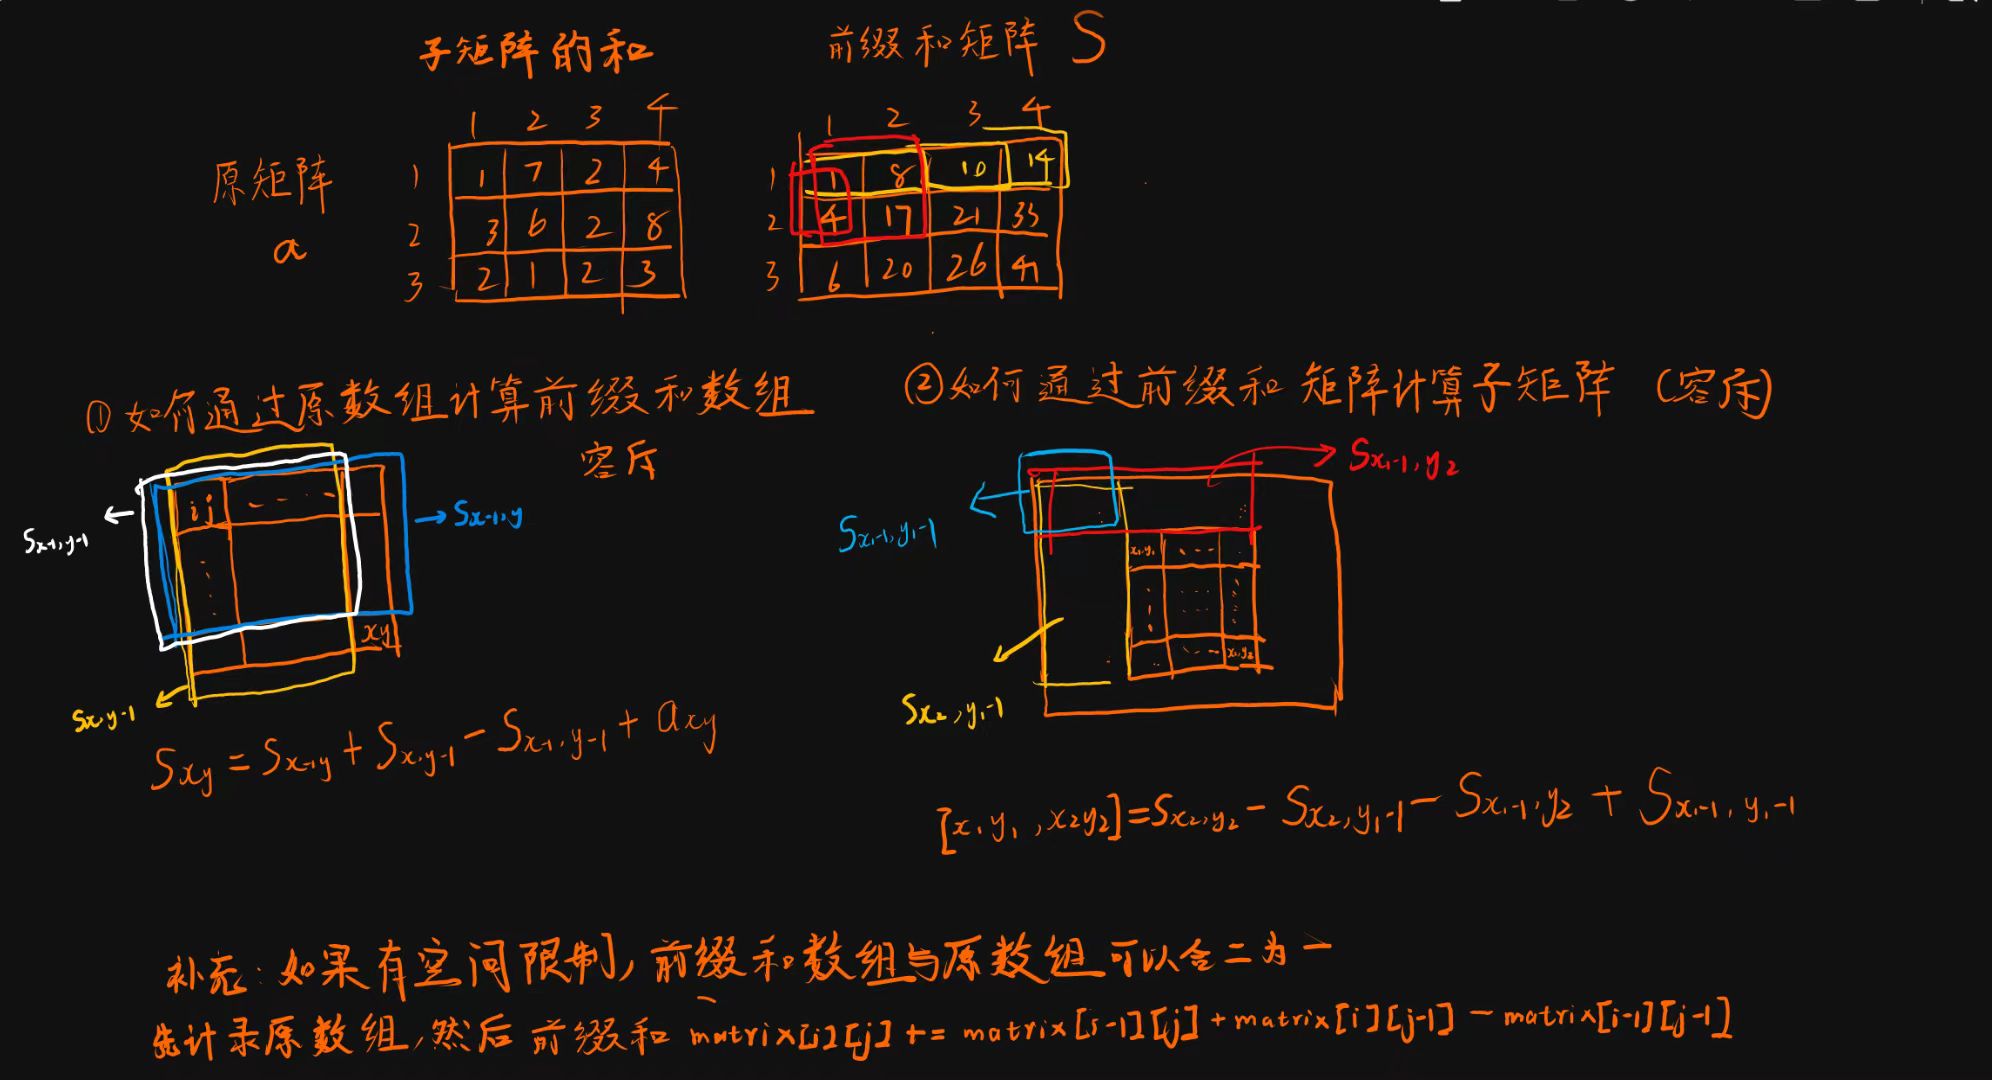 子矩阵的和 前缀和矩阵 S
1 2 3 4
1 2 3 4
原矩阵
a
1 1 7 2 4
2 3 6 2 8
3 2 1 2 3
1 1 8 10 14
2 4 17 21 33
3 6 20 26 41
①如何通过原数组计算前缀和数组
容斥
②如何通过前缀和矩阵计算子矩阵 (容斥)
Sx-1,y-1
ij ----
Sx-1,y
xy
Sx,y-1
Sxy = Sx-1y + Sx,y-1 - Sx-1,y-1 + axy
Sx₁-1,y₂
Sx₁-1,y₁-1
x₁y₁
x₂y₂
Sx₂,y₁-1
[x₁y₁,x₂y₂]=Sx₂,y₂ - Sx₂,y₁-1 - Sx₁-1,y₂ + Sx₁-1,y₁-1
补充:如果有空间限制,前缀和数组与原数组可以合二为一
先计录原数组,然后前缀和 matrix[i][j] += matrix[i-1][j] + matrix[i][j-1] - matrix[i-1][j-1]